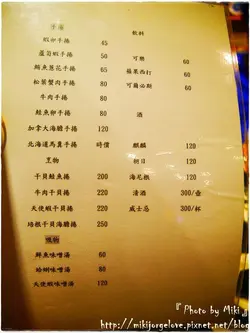 手捲
蝦卵手捲 45
蘆筍蝦手捲 50
鮪魚蔥花手捲 65
松葉蟹肉手捲 80
牛肉手捲 80
鮭魚卵手捲 80
加拿大海膽手捲 120
北海道馬糞手捲 時價
干貝鮭魚捲 200
牛肉干貝捲 220
天使蝦干貝捲 220
培根干貝海膽捲 220
鮮魚味噌湯 60
蛤蜊味噌湯 60
天使蝦味噌湯 120
飲料
可樂 60
蘋果西打 60
可爾必斯 60
酒
麒麟 120
朝日 120
海尼根 120
清酒 300/壺
威士忌 300/杯
『 Photo by Miki 』
http://mikijorgelove.pixnet.net/blog